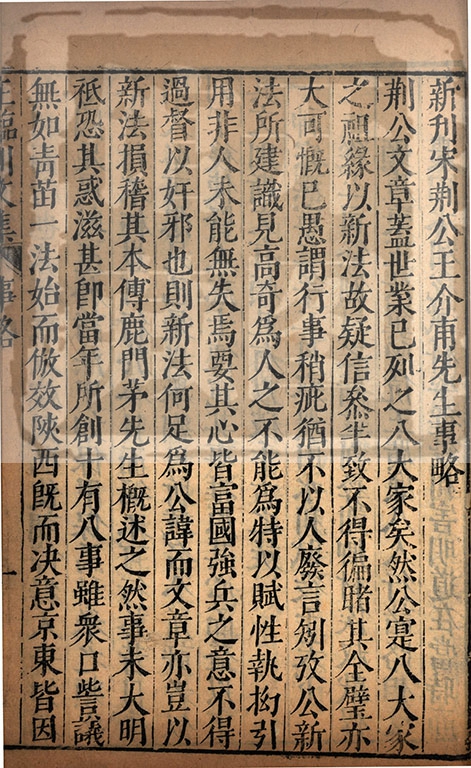 新刊宋荆公王介甫先生事略
荆公文章蓋世業已列之八大家矣然公寔八大家
之祖緣以新法故疑信叅半致不得徧睹其全璧亦
大可慨已愚謂行事稍疵猶不以人廢言矧攷公新
法所建識見高奇爲人之不能爲特以賦性執抝引
用非人未能無失焉要其心皆富國強兵之意不得
過督以奸邪也則新法何足爲公諱而文章亦豈以
新法損稽其本傳鹿門茅先生概述之然事未大明
祗恐其惑滋甚卽當年所創十有八事雖衆口訾議
無如靑苗一法始而倣效陝西旣而决意京東皆因
王臨川文集 事略
一